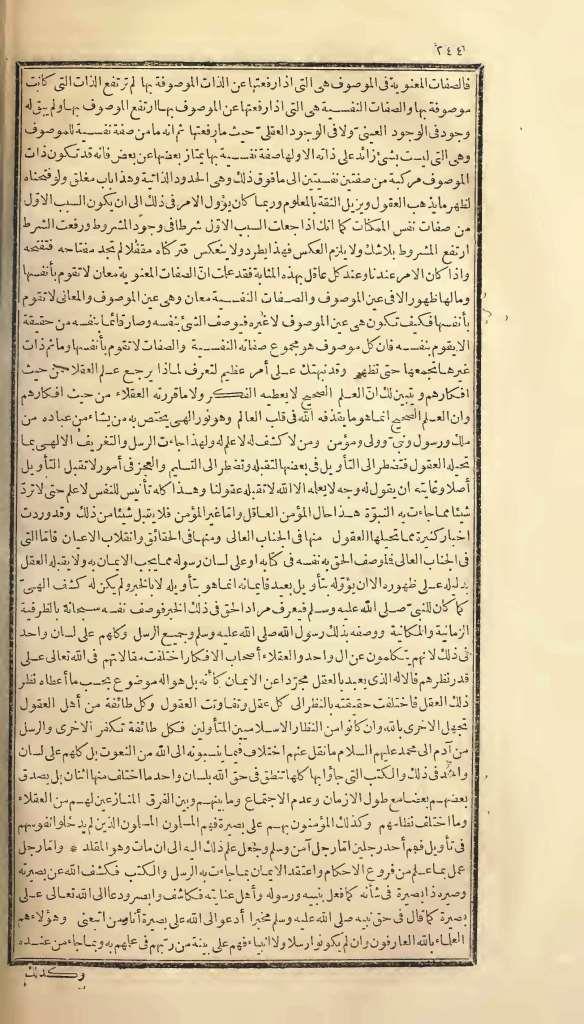 ٢٤٤
فالصفات المعنوية فى الموصوف هى التى اذا رفعتها عن الذات الموصوفة بها لم ترتفع الذات التى كانت
موصوفة بها والصفات النفسية هى التى اذا رفعتها عن الموصوف بها ارتفع الموصوف بها ولم يبق له
وجود فى الوجود العينى ولا فى الوجود العقلى حيث ما رفعتها ثم انه ما من صفة نفسية للموصوف
وهى التى ليست بشئ زائد على ذاته الا ولها صفة نفسية بها يمتاز بعضها عن بعض فانه قد تكون ذات
الموصوف مركبة من صفتين نفسيتين الى ما فوق ذلك وهى الحدود الذاتية وهذا باب مغلق ولو فتحناه
لظهر ما يذهب العقول ويزيل الثقة بالمعلوم وربما كان يؤول الامر فى ذلك الى ان يكون السبب الاول
من صفات نفس الممكنات كما انك اذا جعلت السبب الاول شرطا فى وجود المشروط ورفعت الشرط
ارتفع المشروط بلا شك ولا يلزم العكس فهذا يطرد ولا ينعكس فتركناه مقفلا لمن يجد مفتاحه فيفتحه
واذا كان الامر عندنا وعند كل عاقل بهذه المثابة فقد علمت انّ الصفات المعنوية معان لا تقوم بأنفسها
وما لها ظهور الا فى عين الموصوف والصفات النفسية معان وهى عين الموصوف والمعانى لا تقوم
بأنفسها فكيف تكون هى عين الموصوف لا غيره فيوصف الشئ بنفسه وصار قائما بنفسه من حقيقة
الا يقوم بنفسه فان كل موصوف هو مجموع صفاته النفسية والصفات لا تقوم بأنفسها وما ثم ذات
غيرها تجمعها حتى تظهر وقد نبهتك على أمر عظيم لتعرف لماذا يرجع علم العقلاء من حيث
افكارهم ويتبين لك انّ العلم الصحيح لا يعطيه الفكر ولا ما قررته العقلاء من حيث افكارهم
وان العلم الصحيح انما هو ما يقذفه الله فى قلب العالم وهو نور الهى يختص به من يشاء من عباده من
ملك ورسول ونبى وولى ومؤمن ومن لا كشف له لا علم له ولهذا جاءت الرسل والتعريف الالهى بما
تحيله العقول فتضطر الى التأويل فى بعضها لتقبله وتضطر الى التسليم والعجز فى أمور لا تقبل التأويل
أصلا وغايته ان يقول له وجه لا يعلمه الا الله لا تقبله عقولنا وهذا كله تأنيس للنفس لا علم حتى لا تردّ
شيئا مما جاءت به النبوّة هذا حال المؤمن العاقل وامّا غير المؤمن فلا يقبل شيئا من ذلك وقد وردت
اخبار كثيرة مما تحيلها العقول منها فى الجناب العالى ومنها فى الحقائق وانقلاب الاعيان فامّا التى
فى الجناب العالى فما وصف الحق به نفسه فى كتابه او على لسان رسوله مما يجب الايمان به ولا يقبله العقل
بدليله على ظهوره الا ان يؤوّله بتأويل بعيد فايمانه انما هو بتأويله لا بالخبر ولم يكن له كشف الهىّ
كما كان للنبىّ صلى الله عليه وسلم فيعرف مراد الحق فى ذلك الخبر فوصف نفسه سبحانه بالظرفية
الزمانية والمكانية ووصفه بذلك رسول الله صلى الله عليه وسلم وجميع الرسل وكلهم على لسان واحد
فى ذلك لانهم يتكلمون عن ال واحد والعقلاء أصحاب الافكار اختلفت مقالاتهم فى الله تعالى على
قدر نظرهم فالاله الذى يعبد بالعقل مجرّدا عن الايمان كأنه بل هو اله موضوع بحسب ما أعطاه نظر
ذلك العقل فاختلفت حقيقته بالنظر الى كل عقل وتفاوتت العقول وكل طائفة من أهل العقول
تجهل الاخرى بالله وان كانوا من النظار الاسلاميين المتأولين فكل طائفة تكفر الاخرى والرسل
من آدم الى محمد عليهم السلام ما نقل عنهم اختلاف فيما ينسبونه الى الله من النعوت بل كلهم على لسان
واحد فى ذلك والكتب التى جاؤا بها كلها تنطق فى حق الله بلسان واحد ما اختلف منها اثنان بل يصدق
بعضهم بعضا مع طول الازمان وعدم الاجتماع وما بينهم وبين الفرق المنازعين لهم من العقلاء
وما اختلف نظامهم وكذلك المؤمنون بهم على بصيرة فهم المسلمون المسلمون الذين لم يدخلوا نفوسهم
فى تأويل فهم أحد رجلين امّا رجل آمن وسلم وجعل علم ذلك اليه الى ان مات وهو المقلد * وامّا رجل
عمل بما علم من فروع الاحكام واعتقد الايمان بما جاءت به الرسل والكتب فكشف الله عن بصيرته
وصيره ذا بصيرة فى شأنه كما فعل بنبيه ورسوله وأهل عنايته فكاشف وابصر ودعا الى الله تعالى على
بصيرة كما قال فى حق نبيه صلى الله عليه وسلم مخبرا أدعو الى الله على بصيرة أنا ومن اتبعنى وهؤلاء هم
العلماء بالله العارفون وان لم يكونوا رسلا ولا انبياء فهم على بينة من ربهم فى علمهم به وبما جاء من عنده
وكذلك